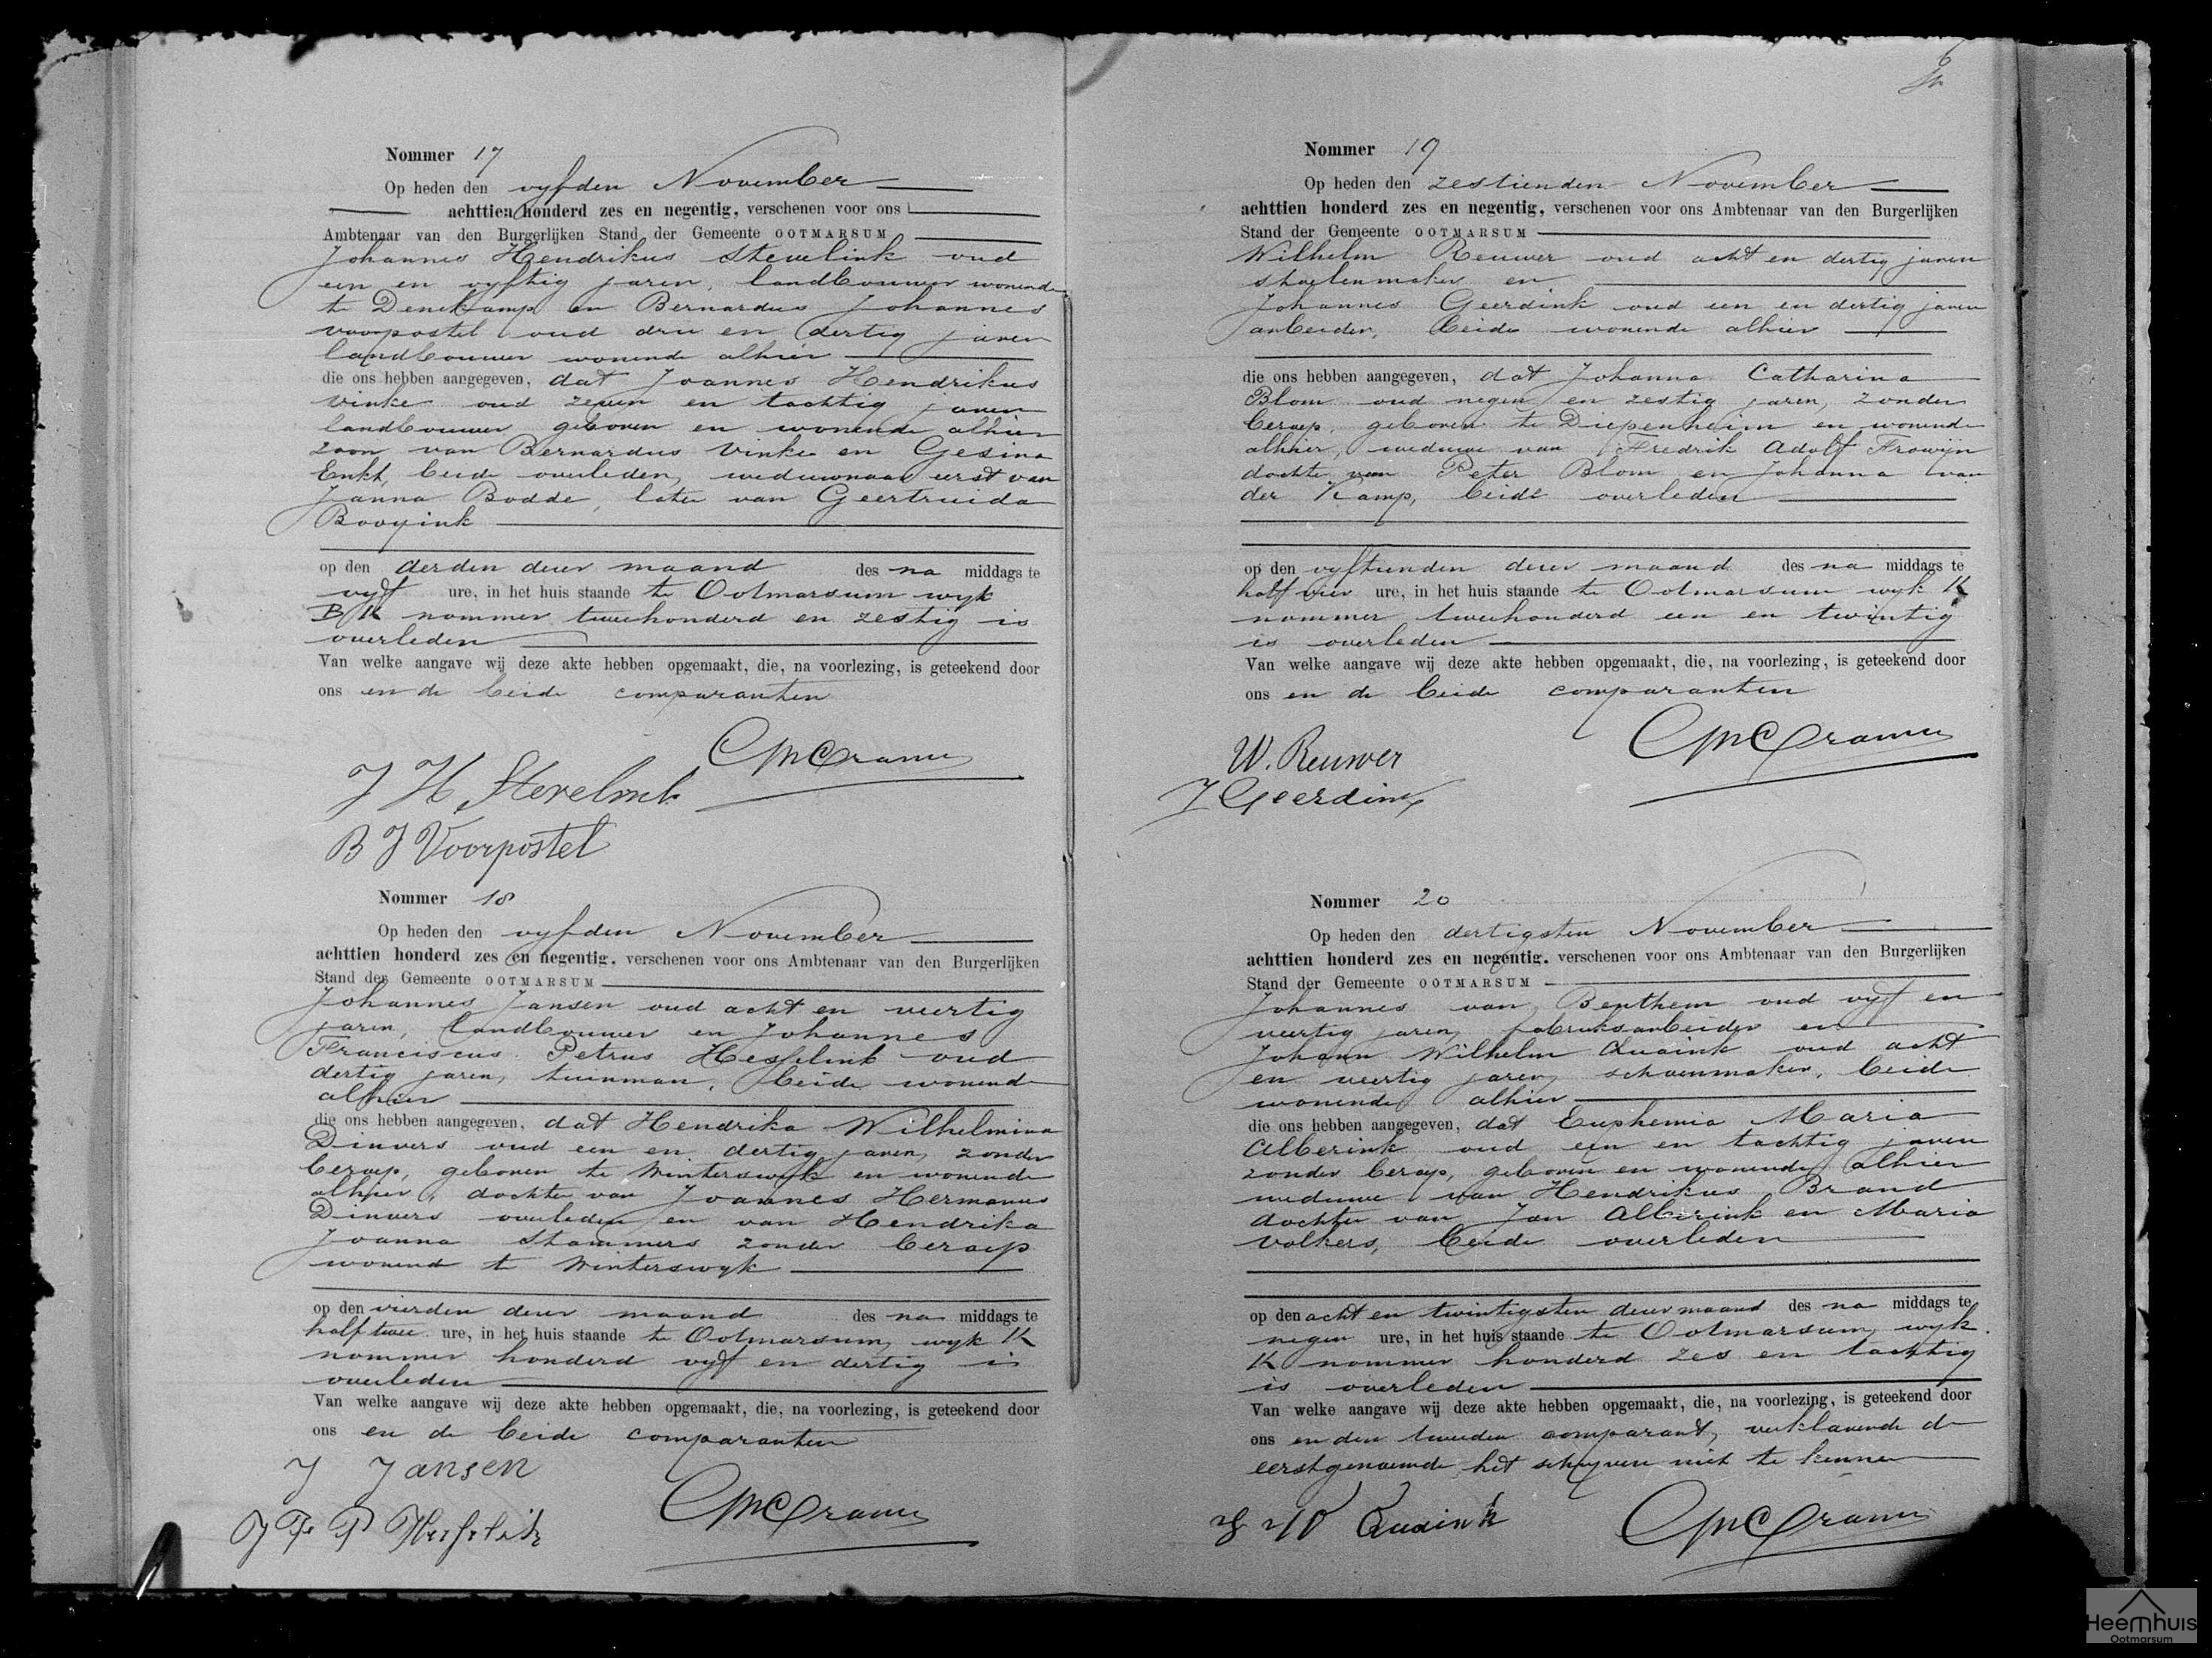 Nommer 17
Op heden den vyfden November
achttien honderd zes en negentig, verschenen voor ons
Ambtenaar van den Burgerlijken Stand der Gemeente OOTMARSUM
Johannes Hendrikus Stevelink oud
een en vyftig jaren, landbouwer wonende
te Denekamp en Bernardus Johannes
Voorpostel oud drie en dertig jaren
landbouwer wonende alhier
die ons hebben aangegeven, dat Joannes Hendrikus
Vinke oud zeven en tachtig jaren
landbouwer geboren en wonende alhier
zoon van Bernardus Vinke en Gesina
Enkt, beide overleden, weduwnaar eerst van
Janna Bodde, later van Geertruida
Booyink
op den derden dezer maand des na middags te
vyf ure, in het huis staande te Ootmarsum wyk
B K nommer tweehonderd en zestig is
overleden
Van welke aangave wij deze akte hebben opgemaakt, die, na voorlezing, is geteekend door
ons en de beide comparanten
J H Stevelink
B J Voorpostel
Nommer 18
Op heden den vyfden November
achttien honderd zes en negentig, verschenen voor ons Ambtenaar van den Burgerlijken
Stand der Gemeente OOTMARSUM
Johannes Jansen oud acht en veertig
jaren, landbouwer en Johannes
Franciscus Petrus Hesselink oud
dertig jaren, tuinman, beide wonende
alhier
die ons hebben aangegeven, dat Hendrika Wilhelmina
Dinvers oud een en dertig jaren, zonder
beroep, geboren te Winterswyk en wonende
alhier, dochter van Joannes Hermanus
Dinvers overleden en van Hendrika
Joanna Stammers zonder beroep
wonend te Winterswyk
op den vierden dezer maand des na middags te
half twee ure, in het huis staande te Ootmarsum, wyk K
nommer honderd vyf en dertig is
overleden
Van welke aangave wij deze akte hebben opgemaakt, die, na voorlezing, is geteekend door
ons en de beide comparanten
J Jansen
J F P
Nommer 19
Op heden den zestienden November
achttien honderd zes en negentig, verschenen voor ons Ambtenaar van den Burgerlijken
Stand der Gemeente OOTMARSUM
Wilhelm Reuwer oud acht en dertig jaren
stoelenmaker en
Johannes Geerdink oud een en dertig jaren
arbeider, beide wonende alhier
die ons hebben aangegeven, dat Johanna Catharina
Blom oud negen en zestig jaren, zonder
beroep, geboren te Diepenheim en wonende
alhier, weduwe van Fredrik Adolf Frowijn
dochter van Peter Blom en Johanna van
der Kamp, beide overleden
op den vyftienden dezer maand des na middags te
half vier ure, in het huis staande te Ootmarsum wyk K
nommer tweehonderd een en twintig
is overleden
Van welke aangave wij deze akte hebben opgemaakt, die, na voorlezing, is geteekend door
ons en de beide comparanten
W. Reuwer
J Geerdink
Nommer 20
Op heden den dertigsten November
achttien honderd zes en negentig, verschenen voor ons Ambtenaar van den Burgerlijken
Stand der Gemeente OOTMARSUM
Johannes van Benthem oud vyf en
veertig jaren, fabrieksarbeider en
Johann Wilhelm Quaink oud acht
en veertig jaren, schoenmaker, beide
wonende alhier
die ons hebben aangegeven, dat Euphemia Maria
Alberink oud een en tachtig jaren
zonder beroep, geboren en wonende alhier
weduwe van Hendrikus Brand
dochter van Jan Alberink en Maria
Volkers, beide overleden
op den acht en twintigsten dezer maand des na middags te
negen ure, in het huis staande te Ootmarsum, wyk
K nommer honderd zes en tachtig
is overleden
Van welke aangave wij deze akte hebben opgemaakt, die, na voorlezing, is geteekend door
ons en den tweeden comparant, verklarende de
eerstgenoemde het schryven niet te kennen
J W Quaink
Heemhuis
Ootmarsum